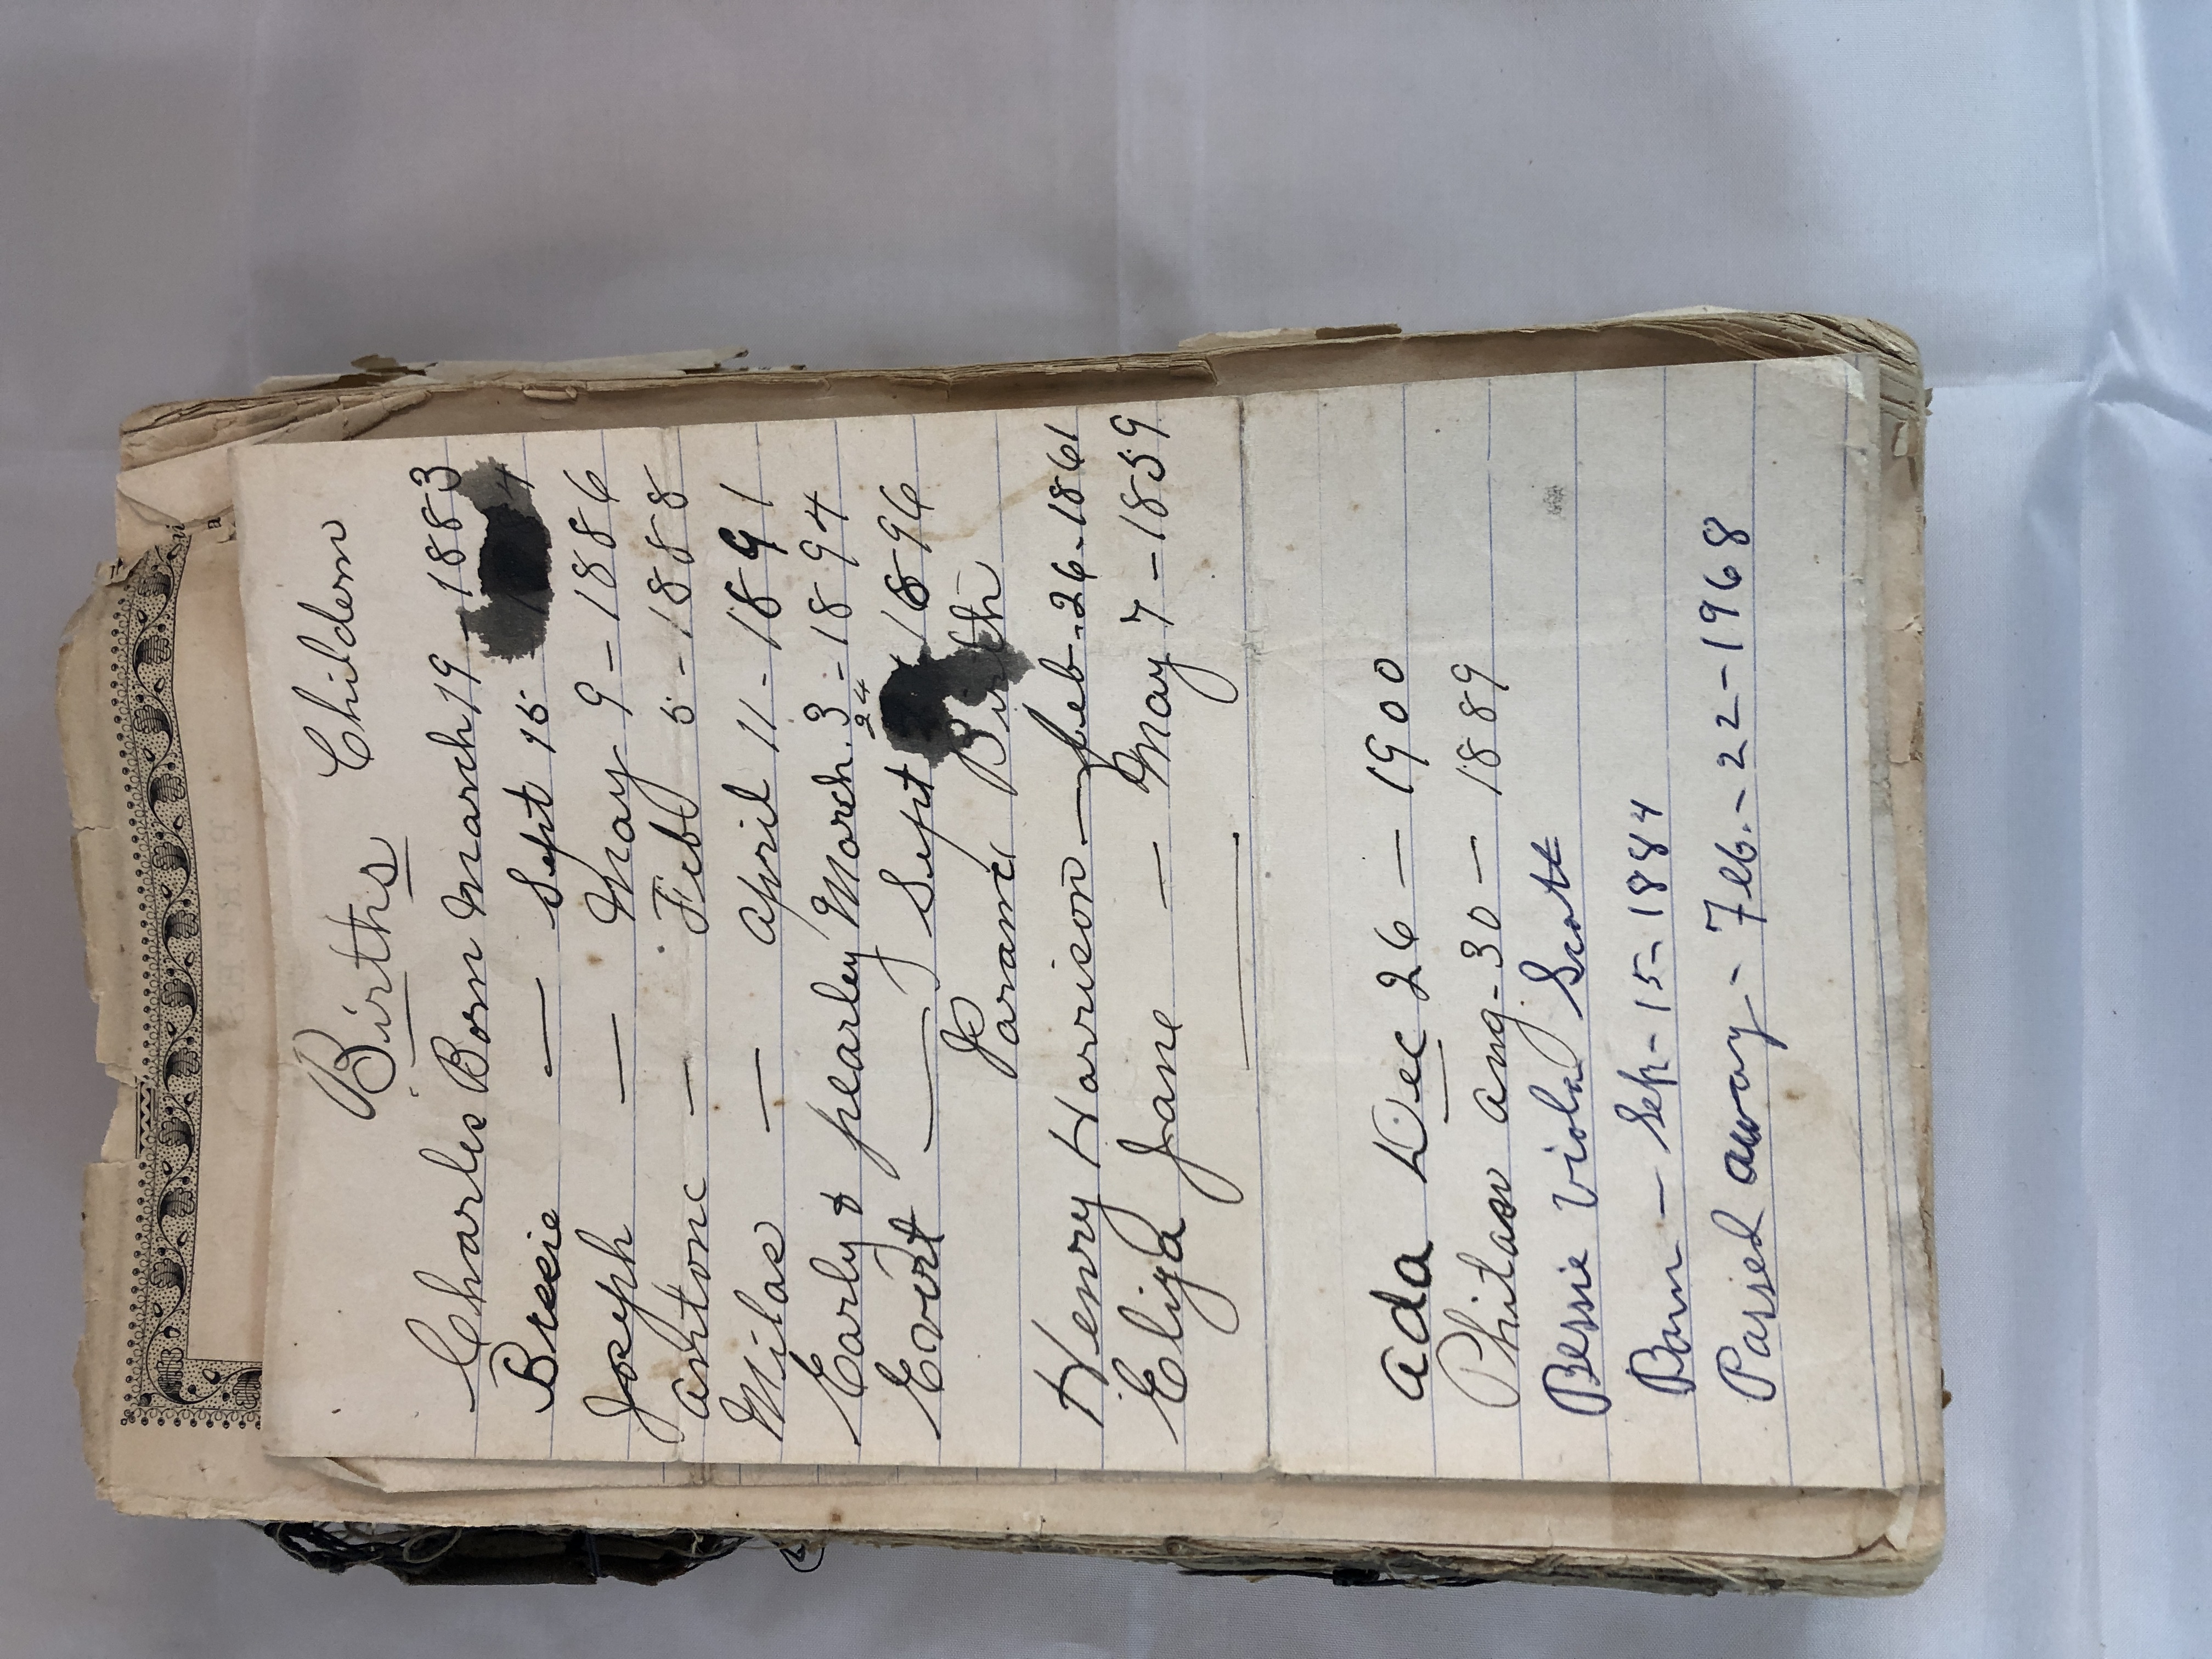 Births Childern
Charles Born March 19 - 1883
Bessie — Sept 15 4
Joseph — May 9 - 1886
— Feb 5 - 1888
Milas — April 11 - 1891
Early & pearley March 3 - 1894
24
Evert — Sept 1896
Birth
Henry Harrison — feb - 26 - 1861
Eliza Jane — May 7 - 1859
ada Dec 26 — 1900
aug - 30 — 1889
Bessie Viola Scott
Born — Sep - 15 - 1884
Passed away - Feb. - 22 - 1968
BIRTHS